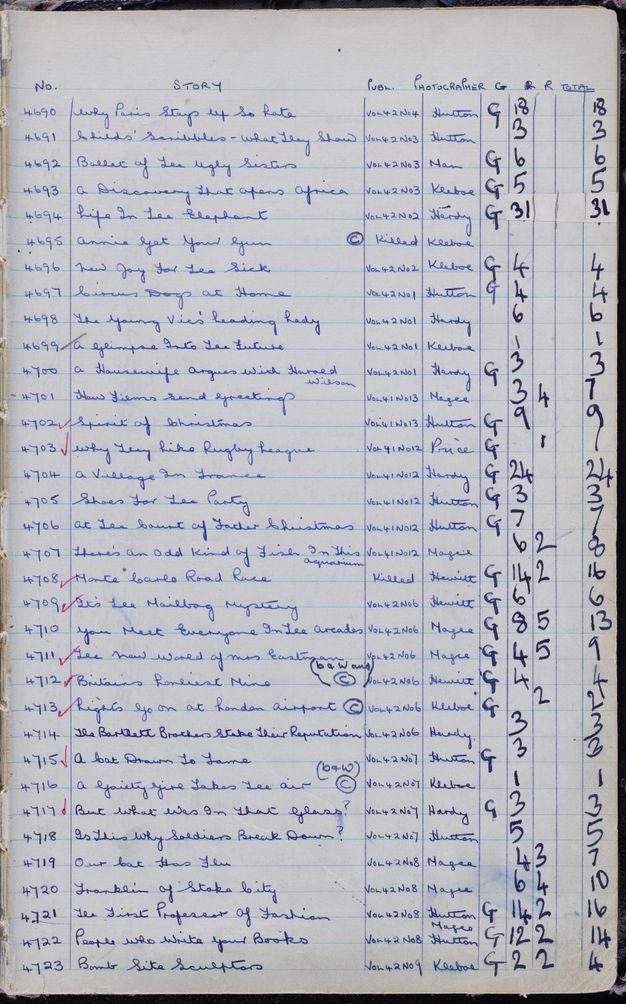 No. STORY PUBL. PHOTOGRAPHER G R R TOTAL
4690 Why Paris Stays Up So Late VOL 42 NO 4 Hutton G 18 18
4691 Childs' Scribbles - What They Show VOL 42 NO 3 Hutton 3 3
4692 Ballet of Lee Ugly Sisters VOL 42 NO 3 Man G 6 6
4693 A Discovery That Opens Africa VOL 42 NO 3 Kleboe G 5 5
4694 Life In Lee Elephant VOL 42 NO 2 Hardy G 31 31
4695 Annie Get Your Gun © Killed Kleboe
4696 New Joy For Lee Sick VOL 42 NO 2 Kleboe G 4 4
4697 Circus Dogs at Home VOL 42 NO 1 Hutton G 4 4
4698 The Young Vic's Leading Lady VOL 42 NO 1 Hardy 6 6
4699 A Glimpse Into Lee Future VOL 42 NO 1 Kleboe 1 1
4700 A Housewife Argues With Harold Wilson VOL 42 NO 1 Hardy G 3 3
4701 How Firms Send Greetings VOL 41 NO 13 Magee 3 4 7
4702 Spirit of Christmas VOL 41 NO 13 Hutton G 9 9
4703 Why They Like Rugby League VOL 41 NO 12 Price G 1 1
4704 A Village In France VOL 41 NO 12 Hardy G 24 24
4705 Shoes For Lee Party VOL 41 NO 12 Hutton G 3 3
4706 At Lee Court of Father Christmas VOL 41 NO 12 Hutton G 7 7
4707 There's An Odd Kind of Fish In This Aquarium VOL 41 NO 12 Magee 6 2 8
4708 Monte Carlo Road Race Killed Hewitt G 14 2 16
4709 It's Lee Mailbag Mystery VOL 42 NO 6 Hewitt G 6 6
4710 You Meet Everyone In Lee Arcades VOL 42 NO 6 Magee G 8 5 13
4711 Lee New World of Mrs Eastman VOL 42 NO 6 Magee G 4 5 9
4712 Britains Loneliest Mine (b & W and ©) VOL 42 NO 6 Hewitt G 4 4
4713 Lights Go on at London Airport © VOL 42 NO 6 Kleboe G 2 2
4714 The Bartlett Brothers Stake Their Reputation VOL 42 NO 6 Hardy 3 3
4715 A Cat Drawn To Fame VOL 42 NO 7 Hutton G 3 3
4716 A Gaiety Girl Takes Lee Air (b & W) © VOL 42 NO 7 Kleboe 1 1
4717 But What Was In That Glass? VOL 42 NO 7 Hardy G 3 3
4718 Is This Why Soldiers Break Down? VOL 42 NO 7 Hutton 5 5
4719 Our Cat Has Flu VOL 42 NO 8 Magee 4 3 7
4720 Franklin of Stoke City VOL 42 NO 8 Magee 6 4 10
4721 Lee First Professor Of Fashion VOL 42 NO 8 Hutton G 14 2 16
4722 People Who Write Your Books VOL 42 NO 8 Magee Hutton G 12 2 14
4723 Bomb Site Sculptors VOL 42 NO 9 Kleboe G 2 2 4